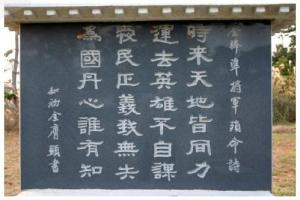 全琫準將軍殞命詩
時來天地皆同力
運去英雄不自謀
愛民正義我無失
爲國丹心誰有知
如初金膺顯書